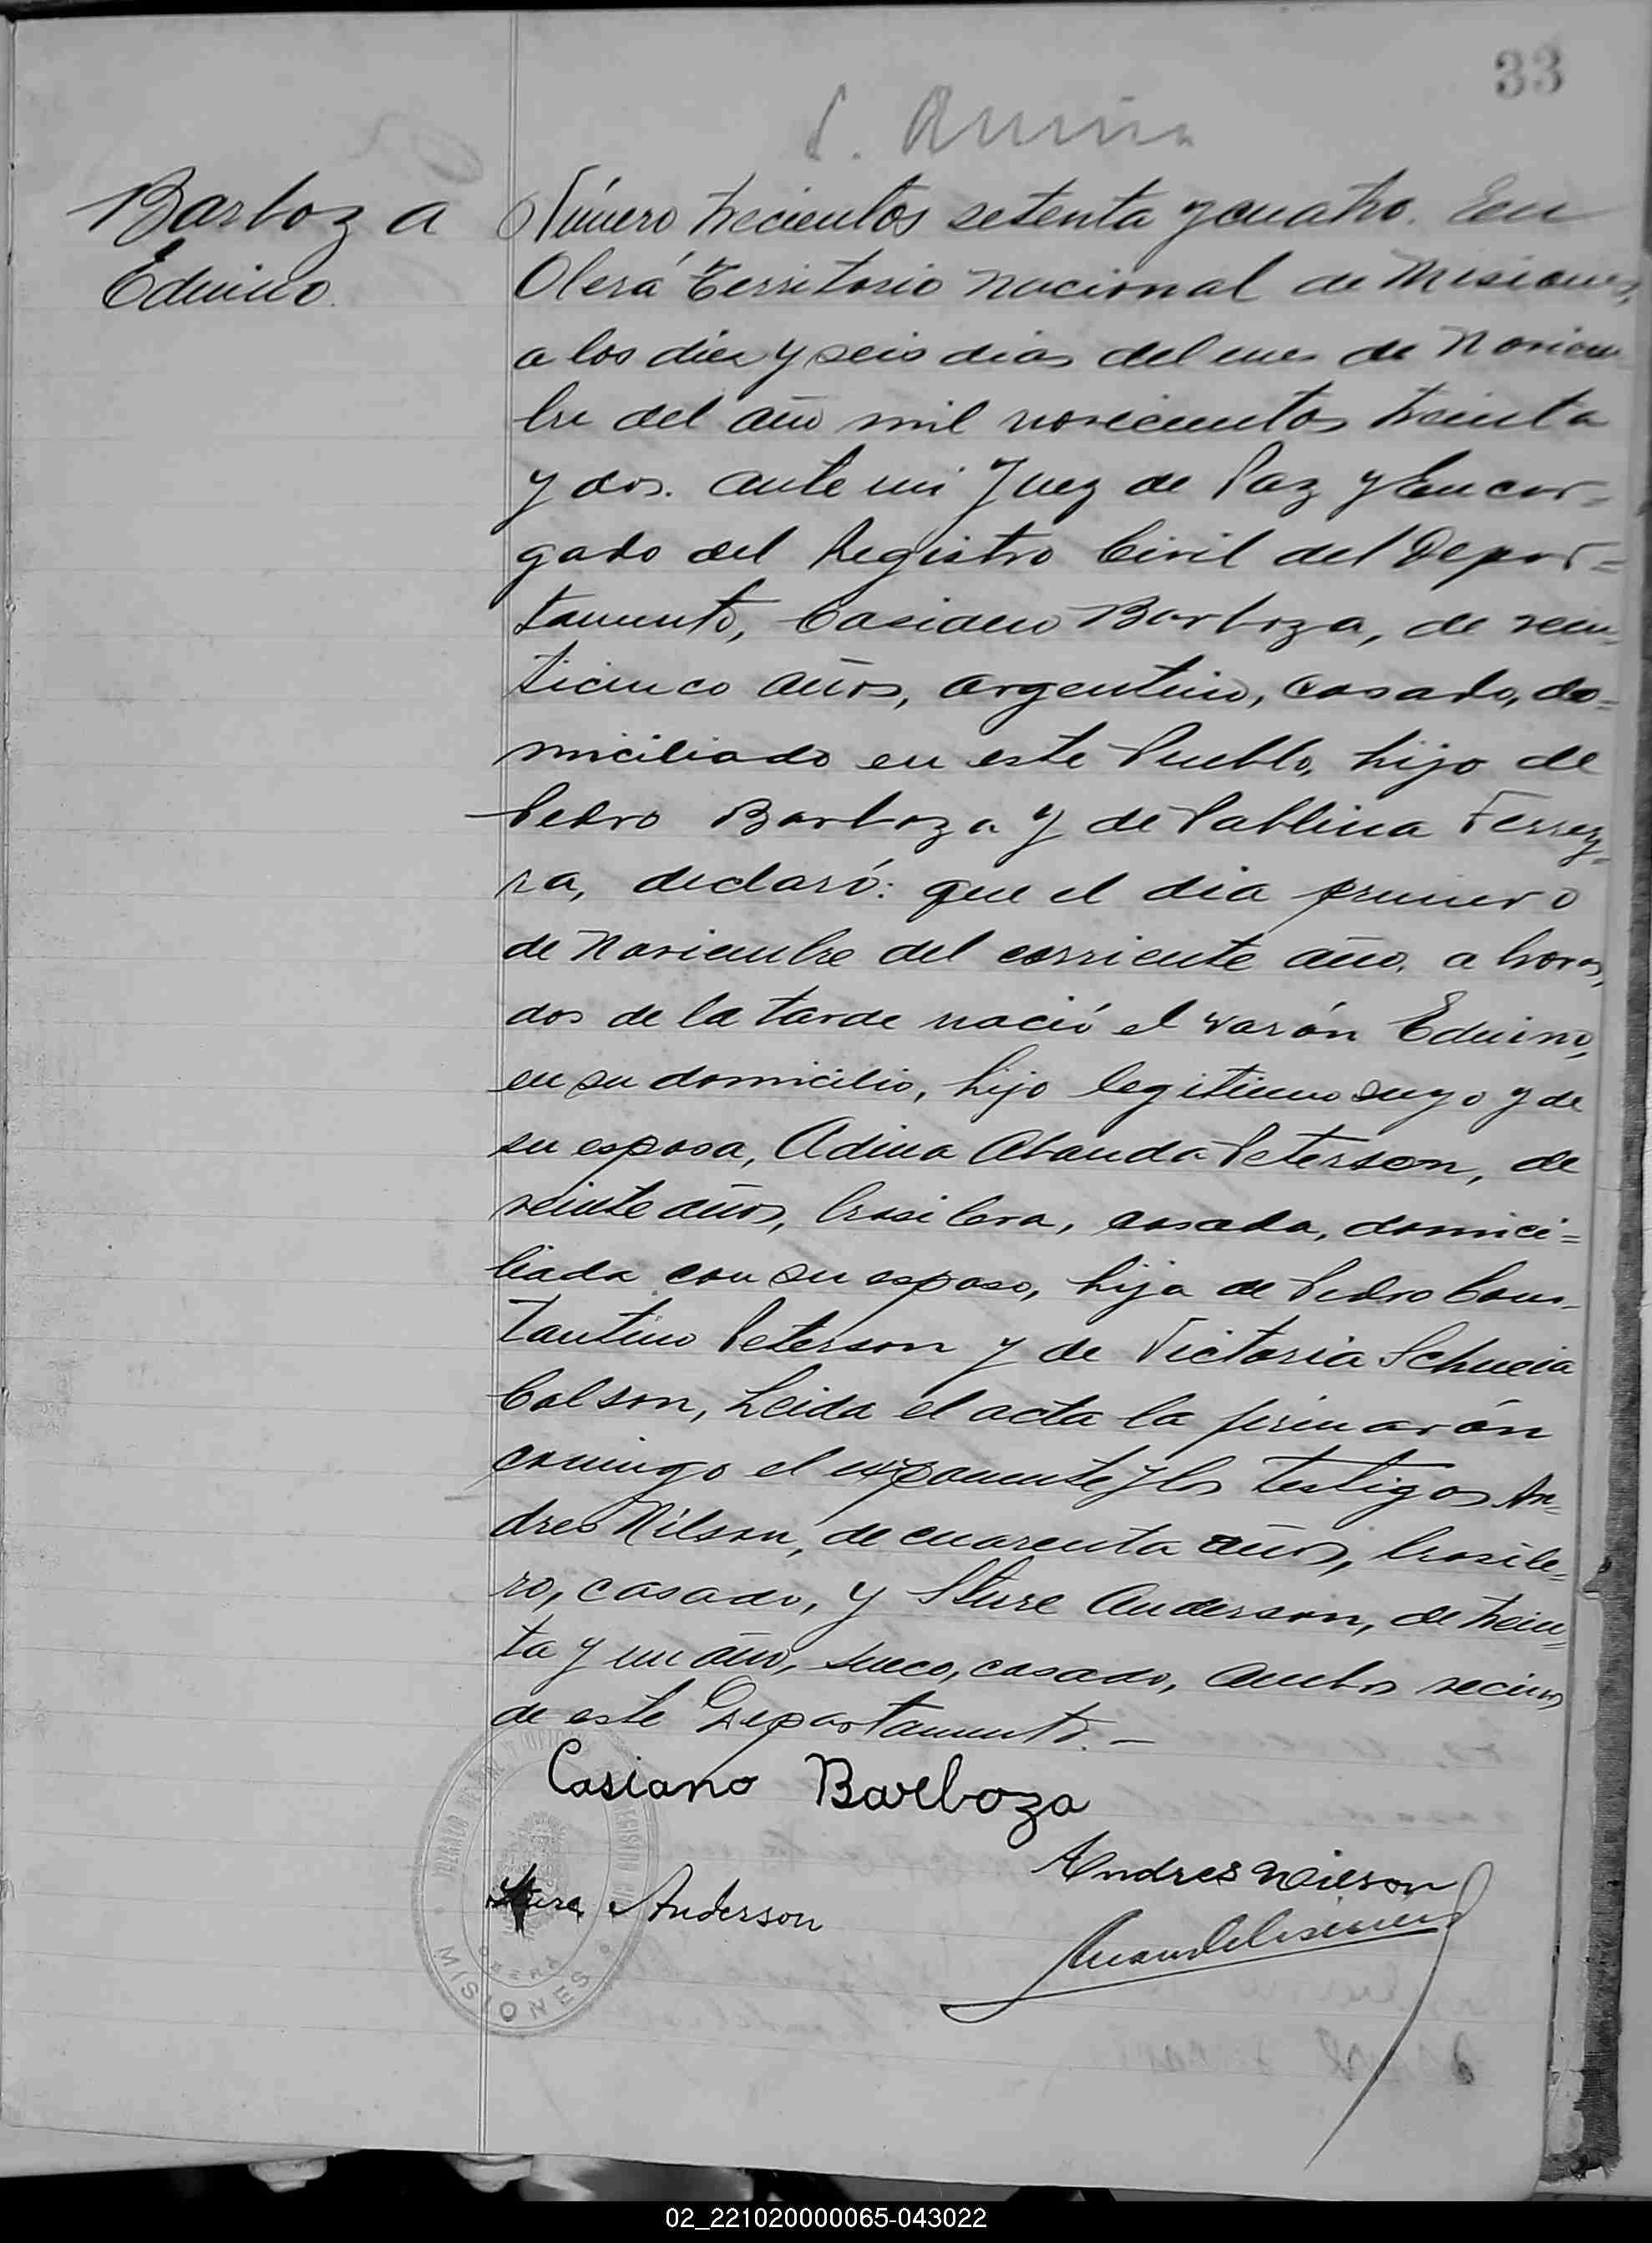 33
Barboza
Eduino.
Número trecientos setenta y cuatro. En
Oberá Territorio Nacional de Misiones,
a los diez y seis dias del mes de Noviem
bre del año mil novecientos treinta
y dos. ante mi Juez de Paz y Encar=
gado del Registro Civil del Depar=
tamento, Casiano Barboza, de vein
ticinco años, argentino, casado, do=
miciliado en este Pueblo, hijo de
Pedro Barboza y de Pablina Ferrey=
ra, declaró: que el dia primero
de Noviembre del corriente año, a horas,
dos de la tarde nació el varón Eduino,
en su domicilio, hijo legitimo suyo y de
su esposa, Adina Peterson, de
veinte años, brasilera, casada, domici=
liada con su esposo, hija de Pedro Cons-
tantino Peterson y de Victoria
Calson, Leida el acta la firmarón
comingo el exponente y los testigos An-
dres Nilson, de cuarenta años, brasile-
ro, casado, y Sture Anderson, de trein-
ta y un año, sueco, casado, ambos vecinos
de este Departamento.-
Casiano Barboza
Andres Nilson
Sture Anderson
REGISTRO CIVIL
OBERÁ
MISIONES
02_221020000065-043022